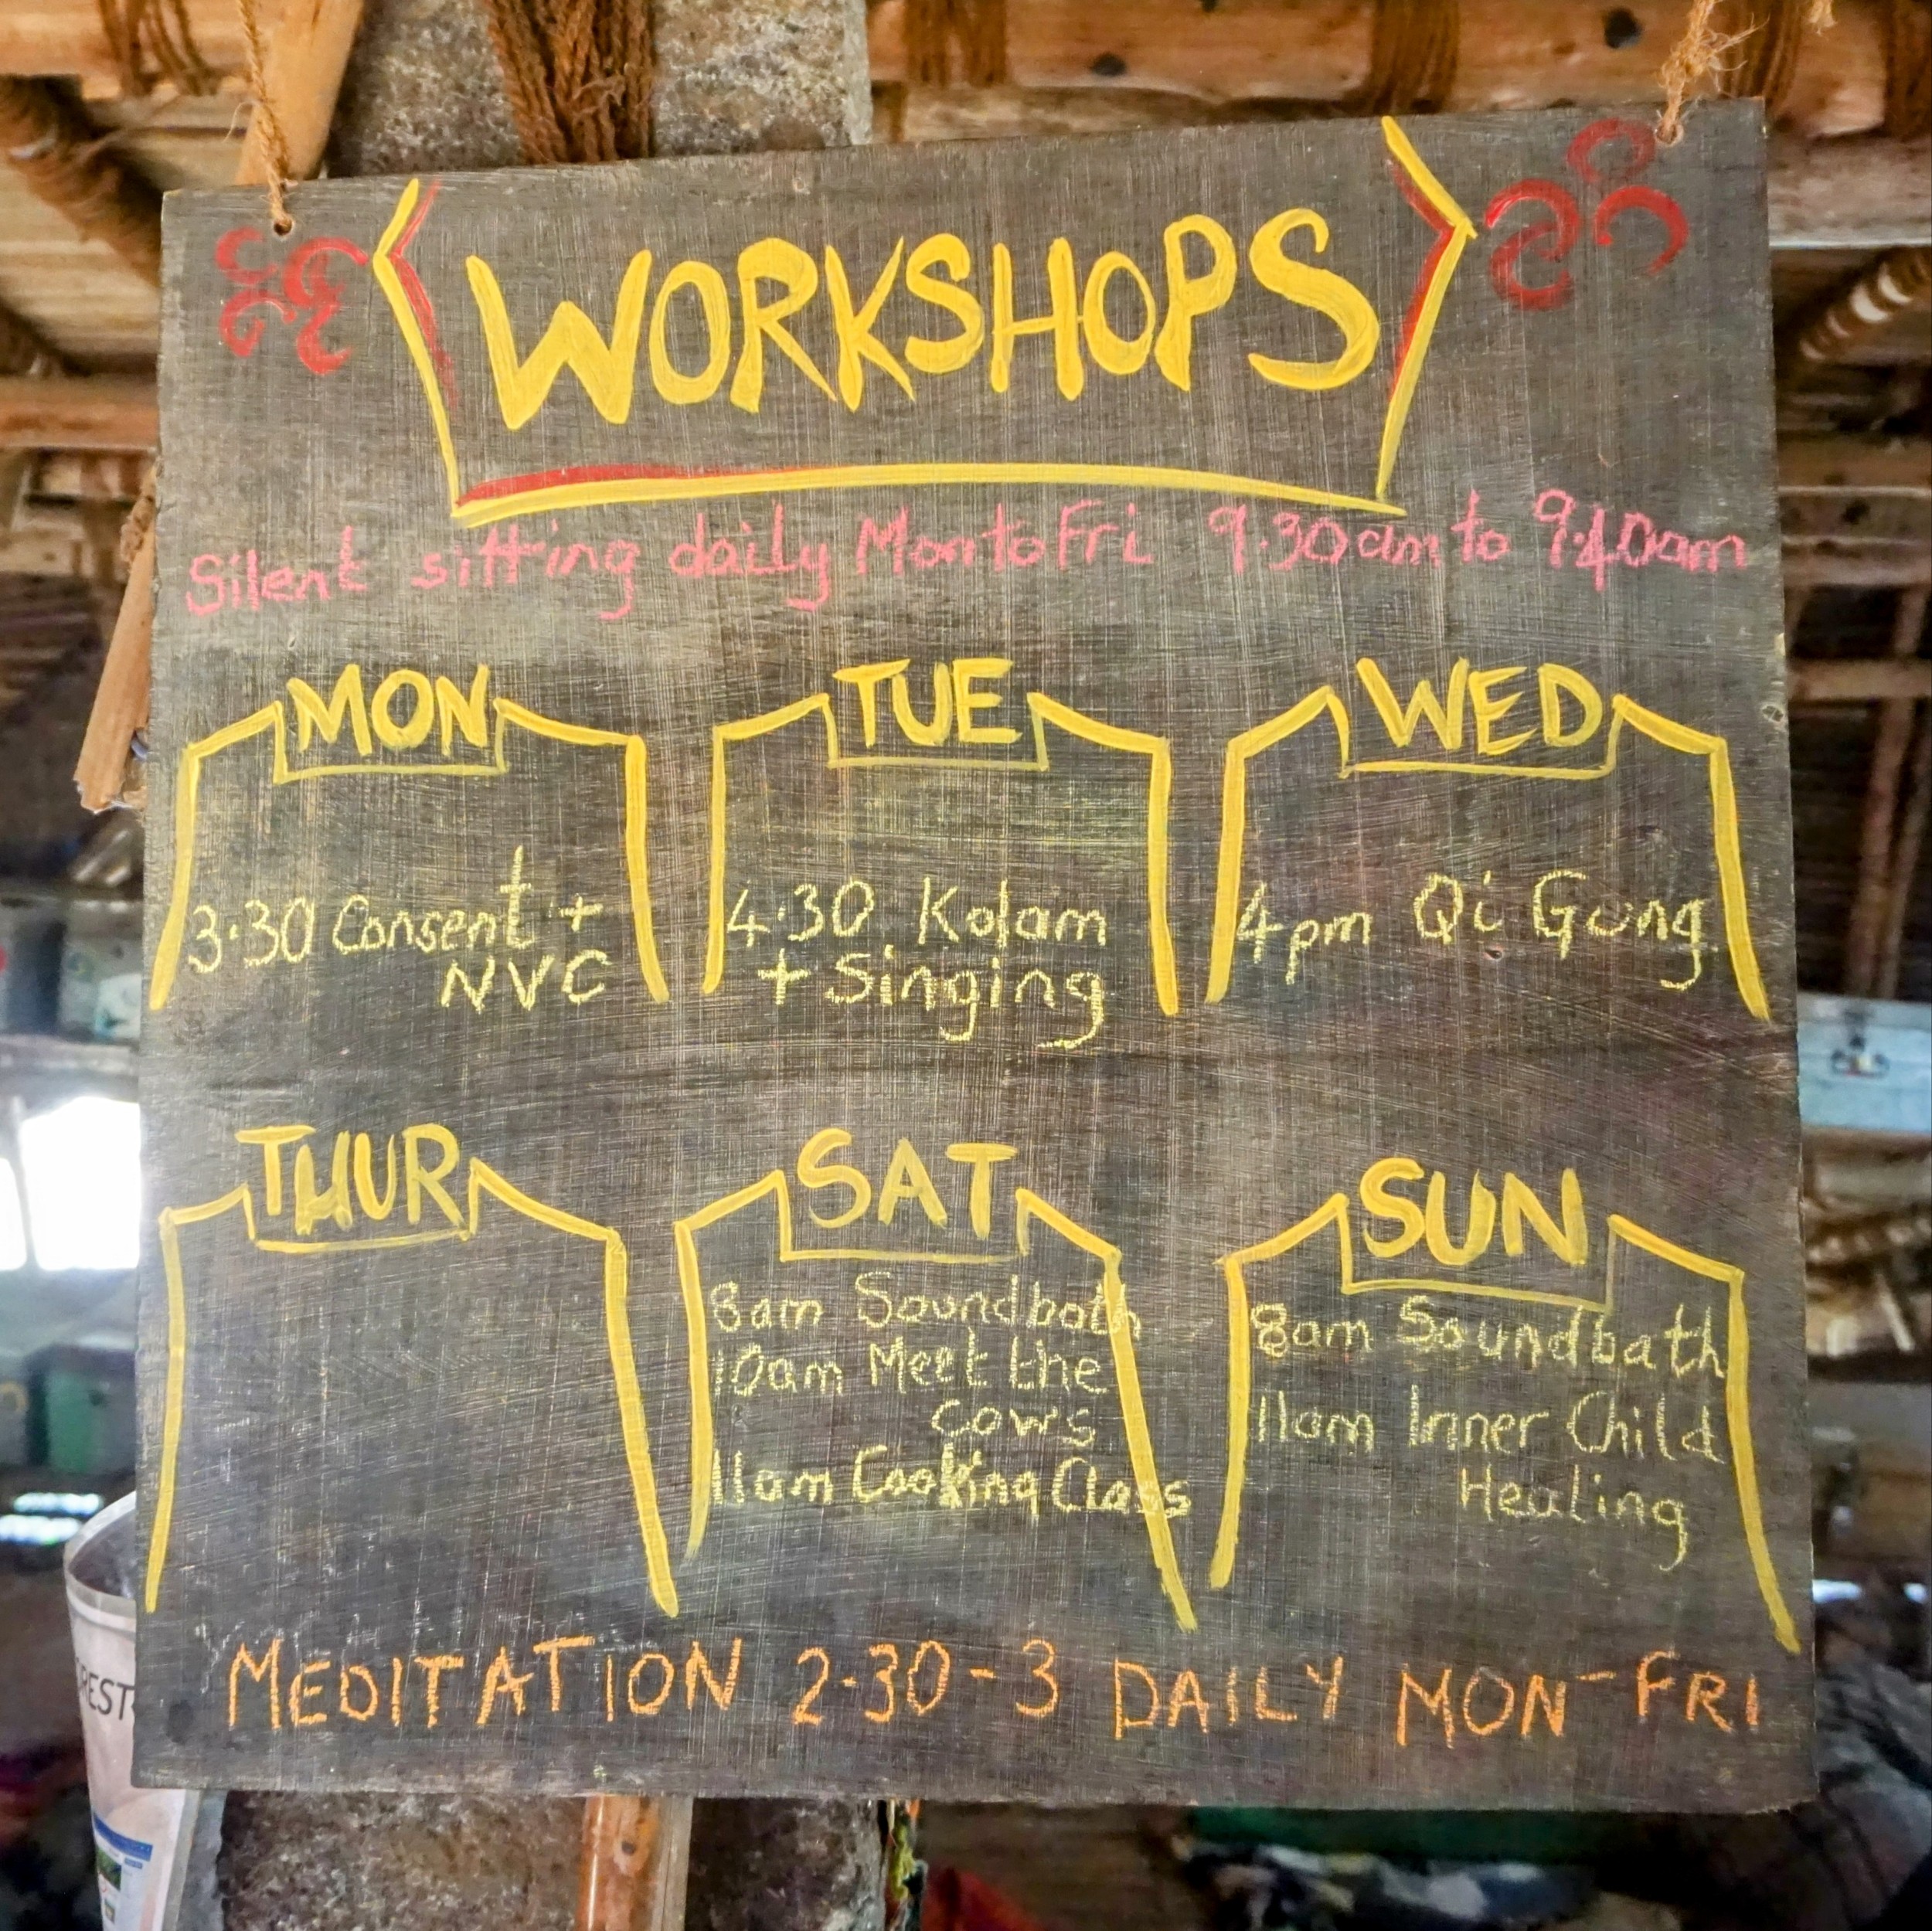 WORKSHOPS
Silent sitting daily Mon to Fri 9.30am to 9.40am
MON
3.30 Consent +
NVC
TUE
4.30 Kolam
+ Singing
WED
4pm Qi Gong
THUR
SAT
8am Soundbath
10am Meet the
cows
11am Cooking Class
SUN
8am Soundbath
11am Inner Child
Healing
MEDITATION 2.30-3 DAILY MON-FRI